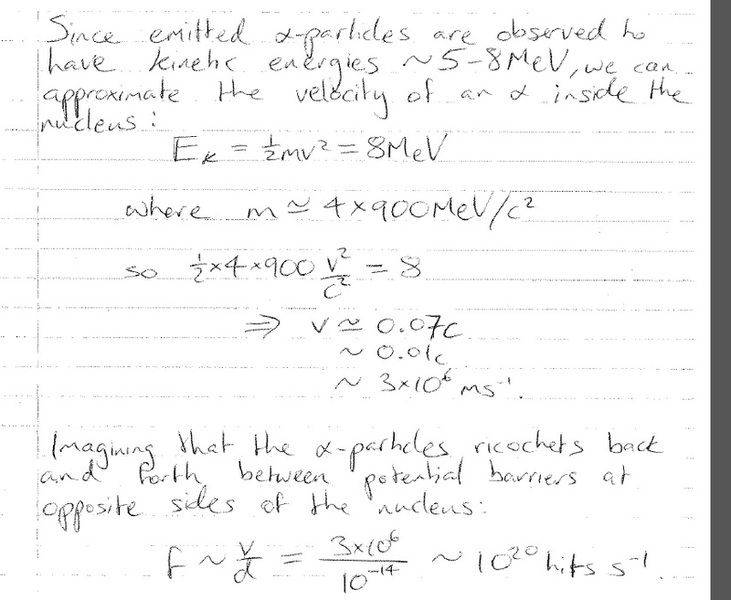 Since emitted α-particles are observed to
have kinetic energies ~5-8MeV, we can
approximate the velocity of an α inside the
nucleus:
E_K = ½mv² = 8MeV
where m ≃ 4×900MeV/c²
so ½×4×900 v²/c² = 8
⇒ v ≃ 0.07c
~ 0.01c
~ 3×10⁶ ms⁻¹.
Imagining that the α-particles ricochets back
and forth between potential barriers at
opposite sides of the nucleus:
f ~ v/d = 3×10⁶/10⁻¹⁴ ~ 10²⁰ hits s⁻¹.